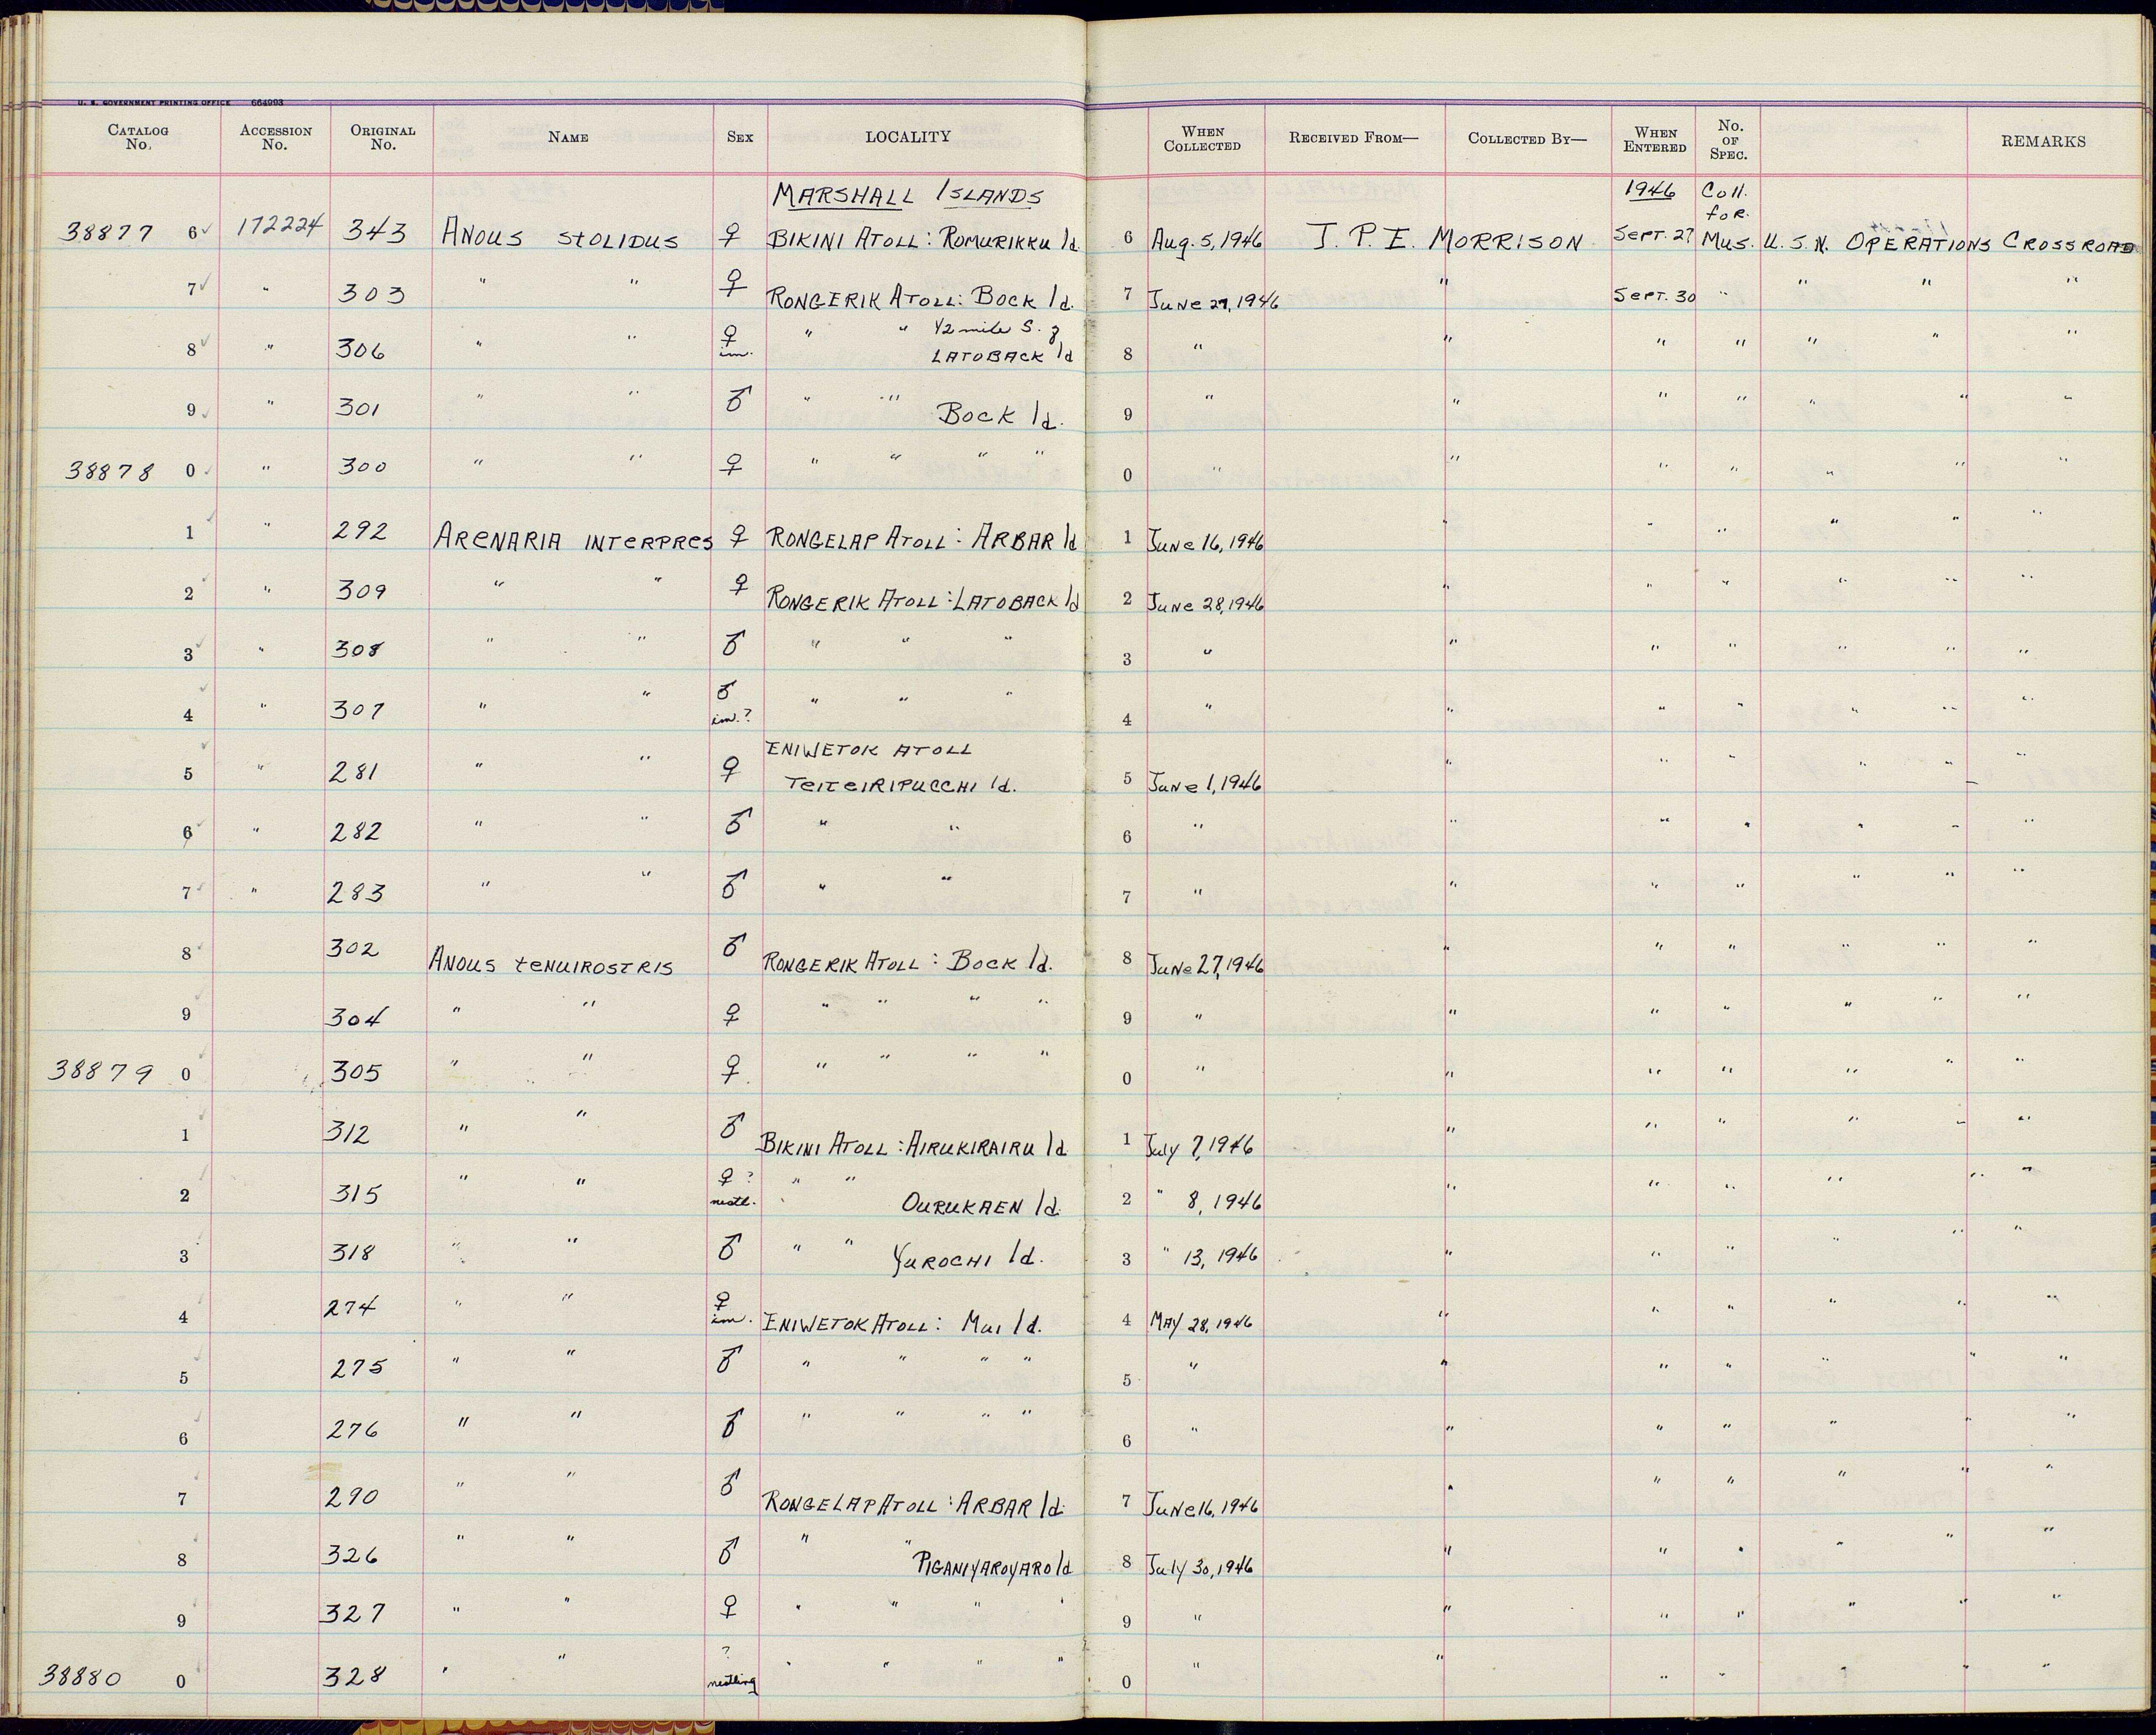 U. S. GOVERNMENT PRINTING OFFICE 664993
CATALOG No. ACCESSION No. ORIGINAL No. NAME SEX LOCALITY WHEN COLLECTED RECEIVED FROM— COLLECTED BY— WHEN ENTERED No. OF SPEC. REMARKS
MARSHALL ISLANDS 1946 Coll. for
38877 6 172224 343 ANOUS STOLIDUS ♀ BIKINI ATOLL: ROMURIKKU Id. 6 Aug. 5, 1946 J. P. E. MORRISON SEPT. 27 Mus. U. S. N. OPERATIONS CROSSROAD
7 " 303 " " ♀ RONGERIK ATOLL: BOCK Id. 7 JUNE 27, 1946 " SEPT. 30 " " " "
8 " 306 " " ♀ im. " " 1/2 mile S. of LATOBACK Id 8 " " " " " " "
9 " 301 " " ♂ " " BOCK Id. 9 " " " " " " "
38878 0 " 300 " " ♀ " " " " 0 " " " " " " "
1 " 292 ARENARIA INTERPRES ♀ RONGELAP ATOLL: ARBAR Id 1 JUNE 16, 1946 " " " " " "
2 " 309 " " ♀ RONGERIK ATOLL: LATOBACK Id 2 JUNE 28, 1946 " " " " " "
3 " 308 " " ♂ " " " 3 " " " " " " "
4 " 307 " " ♂ im.? " " " 4 " " " " " " "
5 " 281 " " ♀ ENIWETOK ATOLL TEITEIRIPUCCHI Id. 5 JUNE 1, 1946 " " " " " "
6 " 282 " " ♂ " " 6 " " " " " " "
7 " 283 " " ♂ " " 7 " " " " " " "
8 302 ANOUS TENUIROSTRIS ♂ RONGERIK ATOLL: BOCK Id. 8 JUNE 27, 1946 " " " " " "
9 304 " " ♀ " " " " 9 " " " " " " "
38879 0 305 " " ♀ " " " " 0 " " " " " " "
1 312 " " ♂ BIKINI ATOLL: AIRUKIRAIRU Id 1 July 7, 1946 " " " " " "
2 315 " " ♀ ? nestl. " " OURUKAEN Id. 2 " 8, 1946 " " " " " "
3 318 " " ♂ " " YUROCHI Id. 3 " 13, 1946 " " " " " "
4 274 " " ♀ im. ENIWETOK ATOLL: MUI Id. 4 MAY 28, 1946 " " " " " "
5 275 " " ♂ " " " " 5 " " " " " " "
6 276 " " ♂ " " " " 6 " " " " " " "
7 290 " " ♂ RONGELAP ATOLL: ARBAR Id. 7 JUNE 16, 1946 " " " " " "
8 326 " " ♂ " " PIGANIYAROYARO Id 8 July 30, 1946 " " " " " "
9 327 " " ♀ " " " " 9 " " " " " " "
38880 0 328 " " ? nestling " " " " 0 " " " " " " "